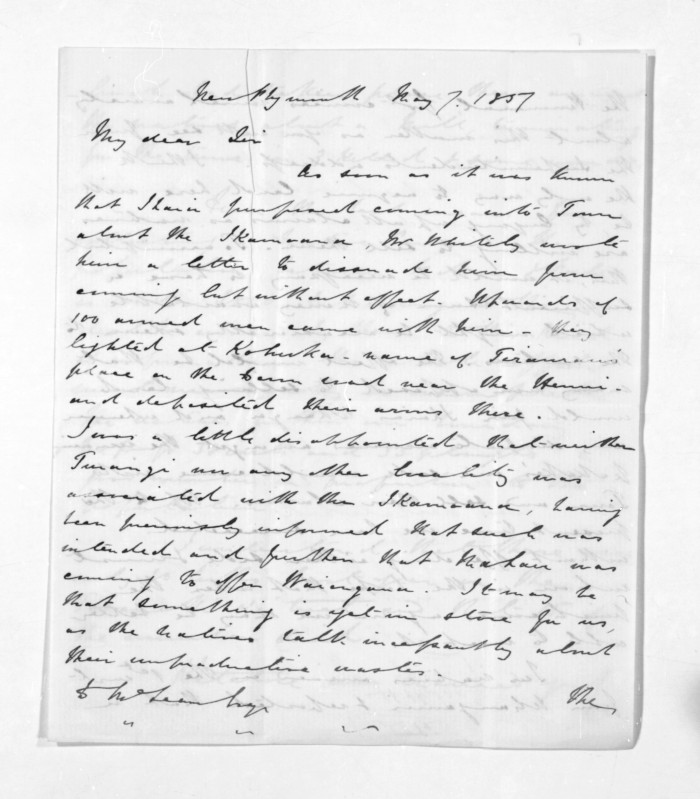 New Plymouth May 7. 1857
My dear Sir
As soon as it was known
that Ihaia purposed coming into Town
about the Ikamoana, Mr Whitely wrote
him a letter to dissuade him from
coming but without effect. Upwards of
100 armed men came with him - they
lighted at - name of
place on the road near the Henui -
and deposited their arms there.
I was a little disappointed that neither
Turangi nor any other locality was
associated with the Ikamoana, having
been previously informed that such was
intended and further that Mahau was
coming to offer Waiongana. It may be
that something is yet in store for us,
as the natives talk incessantly about
their unproductive wastes.
D McLean Esqr
the